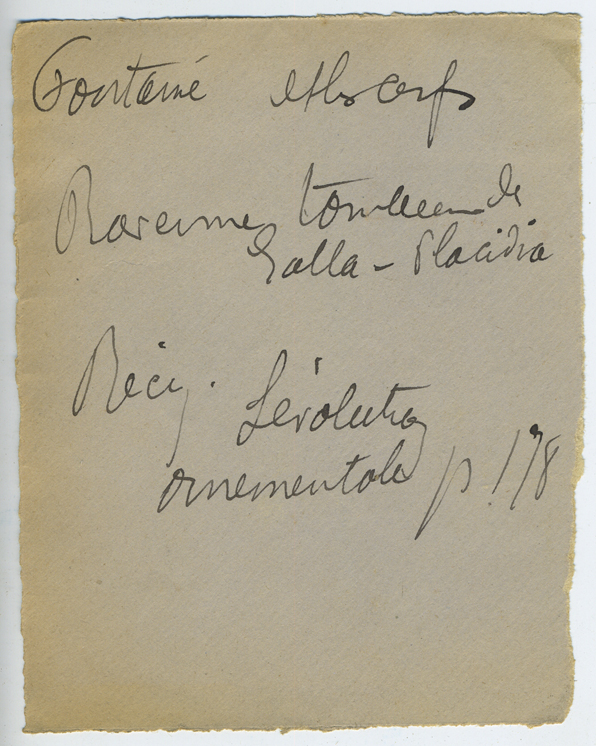 Fontaine et les cerfs
Ravenne tombeau de
Galla - Placidia
L'évolution
ornementale p. 178